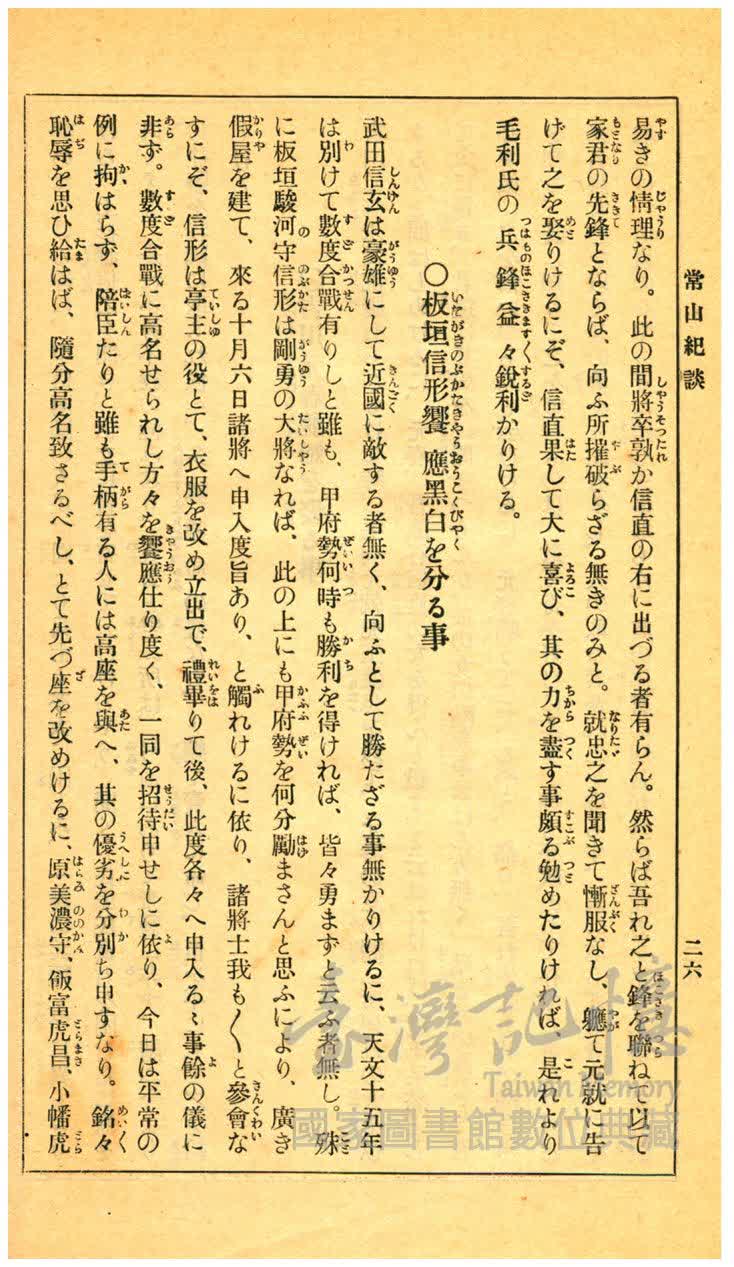 常山紀談
二六
易きの情理なり。此の間將卒孰か信直の右に出づる者有らん。然らば吾れ之と鋒を聯ねて以て
家君の先鋒とならば、向ふ所摧破らざる無きのみと。就忠之を聞きて慚服なし、軈て元就に告
げて之を娶りけるにぞ、信直果して大に喜び、其の力を盡す事頗る勉めたりければ、是れより
毛利氏の兵鋒益々銳利かりける。
〇板垣信形饗應黑白を分る事
武田信玄は豪雄にして近國に敵する者無く、向ふとして勝たざる事無かりけるに、天文十五年
は別けて數度合戰有りしと雖も、甲府勢何時も勝利を得ければ、皆々勇まずと云ふ者無し。殊
に板垣駿河守信形は剛勇の大將なれば、此の上にも甲府勢を何分勵まさんと思ふにより、廣き
假屋を建て、來る十月六日諸將へ申入度旨あり、と觸れけるに依り、諸將士我も〱と參會な
すにぞ、信形は亭主の役とて、衣服を改め立出で、禮畢りて後、此度各々へ申入るゝ事餘の儀に
非ず。數度合戰に高名せられし方々を饗應仕り度く、一同を招待申せしに依り、今日は平常の
例に拘はらず、陪臣たりと雖も手柄有る人には高座を與へ、其の優劣を分別ち申すなり。銘々
恥辱を思ひ給はば、隨分高名致さるべし、とて先づ座を改めけるに、原美濃守、飯富虎昌、小幡虎
臺灣記憶
Taiwan Memory
國家圖書館數位典藏